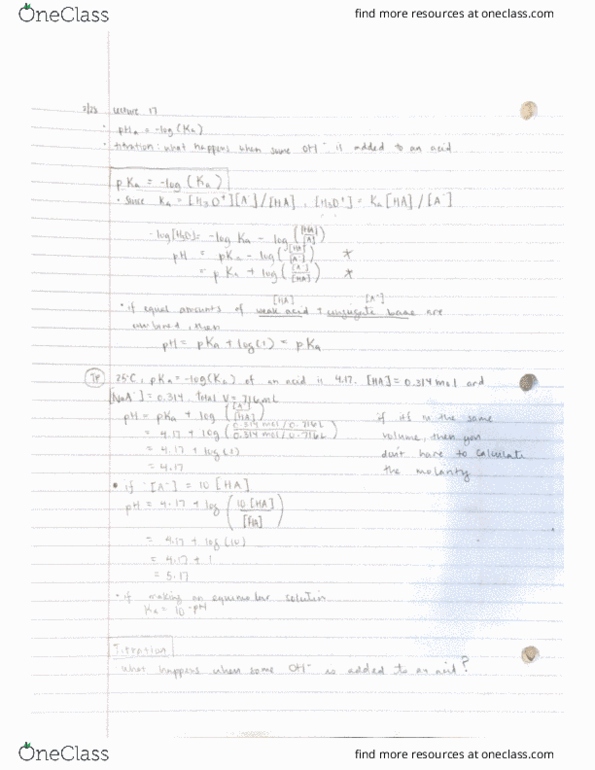 OneClass
find more resources at oneclass.com
2/28 Lecture 17
· pHa = -log(Ka)
· titration: what happens when some OH⁻ is added to an acid
pKa = -log(Ka)
· Since Ka = [H3O⁺][A⁻]/[HA], [H3O⁺] = Ka[HA]/[A⁻]
-log[H3O⁺] = -log Ka - log([HA]/[A⁻])
pH = pKa - log([HA]/[A⁻]) *
= pKa + log([A⁻]/[HA]) *
[HA] [A⁻]
· if equal amounts of weak acid + conjugate base are
combined, then
pH = pKa + log(1) = pKa
25°C, pKa = -log(Ka) of an acid is 4.17. [HA] = 0.314 mol and
[NaA⁻] = 0.314. Total V = 716mL
pH = pKa + log([A⁻]/[HA])
= 4.17 + log(0.314 mol/0.716L / 0.314 mol/0.716L)
= 4.17 + log(1)
= 4.17
if it's in the same
volume, then you
don't have to calculate
the molarity
• if [A⁻] = 10 [HA]
pH = 4.17 + log(10 [HA]/[HA])
= 4.17 + log(10)
= 4.17 + 1
= 5.17
· if making an equimolar solution
Ka = 10^-pH
Titration
what happens when some OH⁻ is added to an acid?
OneClass
find more resources at oneclass.com